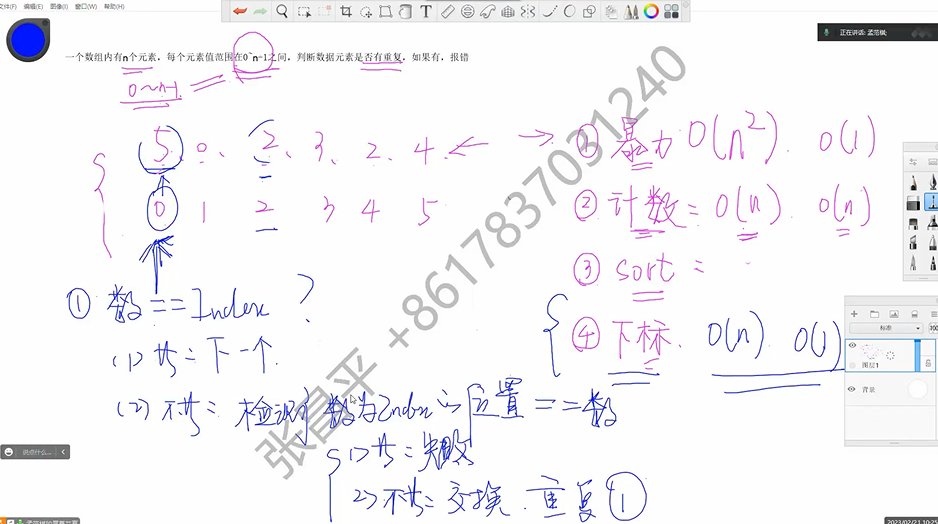 文件(F) 编辑(E) 图像(I) 窗口(W) 帮助(H)
正在讲话: 孟范棋;
一个数组内有n个元素，每个元素值范围在0~n-1之间，判断数据元素是否有重复，如果有，报错
0~n-1
5、0、2、3、2、4
0 1 2 3 4 5
① 暴力 O(n²). O(1)
② 计数 = O(n). O(n)
③ sort =
④ 下标. O(n). O(1)
① 数 == Index ?
(1) 相等 = 下一个.
(2) 不等 = 检测 数为Index的位置 == 数
1> 相等 = 失败
2> 不等 = 交换. 重复 ①
张昌平 +8617837031240
标准
图层1
背景
说点什么...
2023/02/21 10:25